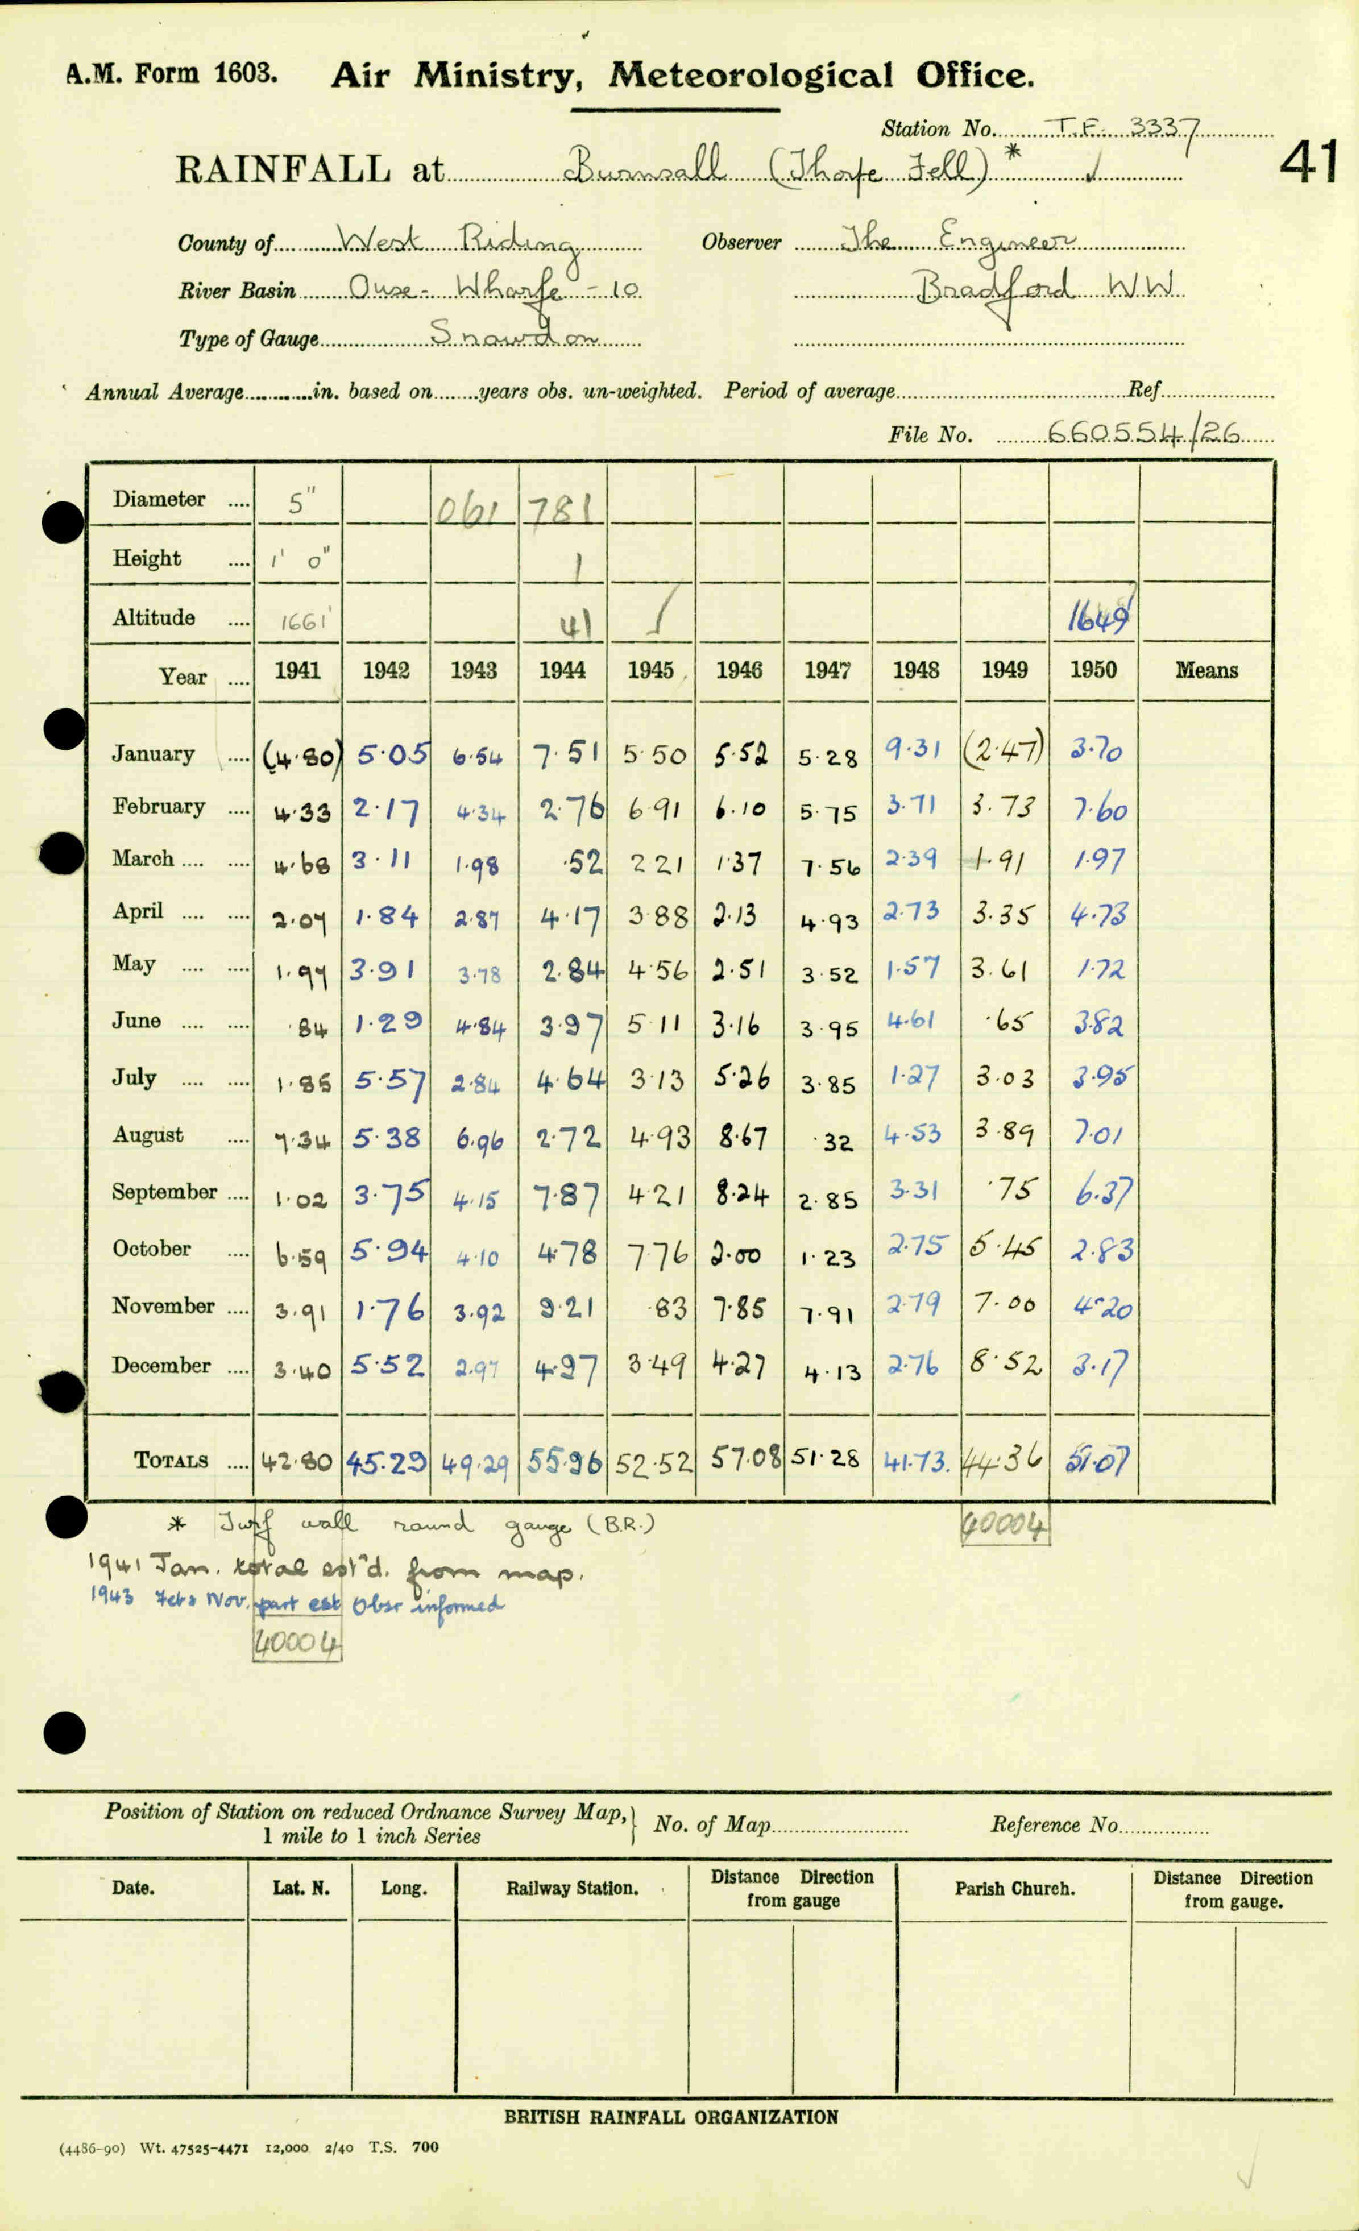 A.M. Form 1603. Air Ministry, Meteorological Office.
Station No. T.E. 3337
RAINFALL at Burnsall (Thorpe Fell) * ✓ 41
County of West Riding Observer The Engineer
River Basin Ouse - Wharfe - 10 Bradford WW
Type of Gauge Snowdon
Annual Average in. based on years obs. un-weighted. Period of average Ref
File No. 660554/26
Diameter .... 5" 061 781
Height .... 1' 0" 1
Altitude .... 1661' 41 1649'
Year .... 1941 1942 1943 1944 1945 1946 1947 1948 1949 1950 Means
January .... (4.80) 5.05 6.54 7.51 5.50 5.52 5.28 9.31 (2.47) 3.70
February .... 4.33 2.17 4.34 2.76 6.91 6.10 5.75 3.71 3.73 7.60
March .... .... 4.68 3.11 1.98 .52 2.21 1.37 7.56 2.39 1.91 1.97
April .... .... 2.07 1.84 2.87 4.17 3.88 2.13 4.93 2.73 3.35 4.73
May .... .... 1.97 3.91 3.78 2.84 4.56 2.51 3.52 1.57 3.61 1.72
June .... .... .84 1.29 4.84 3.97 5.11 3.16 3.95 4.61 .65 3.82
July .... .... 1.85 5.57 2.84 4.64 3.13 5.26 3.85 1.27 3.03 3.95
August .... 7.34 5.38 6.96 2.72 4.93 8.67 .32 4.53 3.89 7.01
September .... 1.02 3.75 4.15 7.87 4.21 8.24 2.85 3.31 .75 6.37
October .... 6.59 5.94 4.10 4.78 7.76 2.00 1.23 2.75 5.45 2.83
November .... 3.91 1.76 3.92 9.21 .83 7.85 7.91 2.79 7.00 4.20
December .... 3.40 5.52 2.97 4.97 3.49 4.27 4.13 2.76 8.52 3.17
TOTALS .... 42.80 45.29 49.29 55.96 52.52 57.08 51.28 41.73. 44.36 51.07
* Turf wall round gauge (B.R.) 40004
1941 Jan. total est'd. from map.
1943 Feb & Nov. part est Obsr informed
40004
Position of Station on reduced Ordnance Survey Map, } No. of Map Reference No.
1 mile to 1 inch Series
Date. Lat. N. Long. Railway Station. Distance from gauge Direction Parish Church. Distance Direction from gauge.
BRITISH RAINFALL ORGANIZATION
(4486-90) Wt. 47525-4471 12,000 2/40 T.S. 700